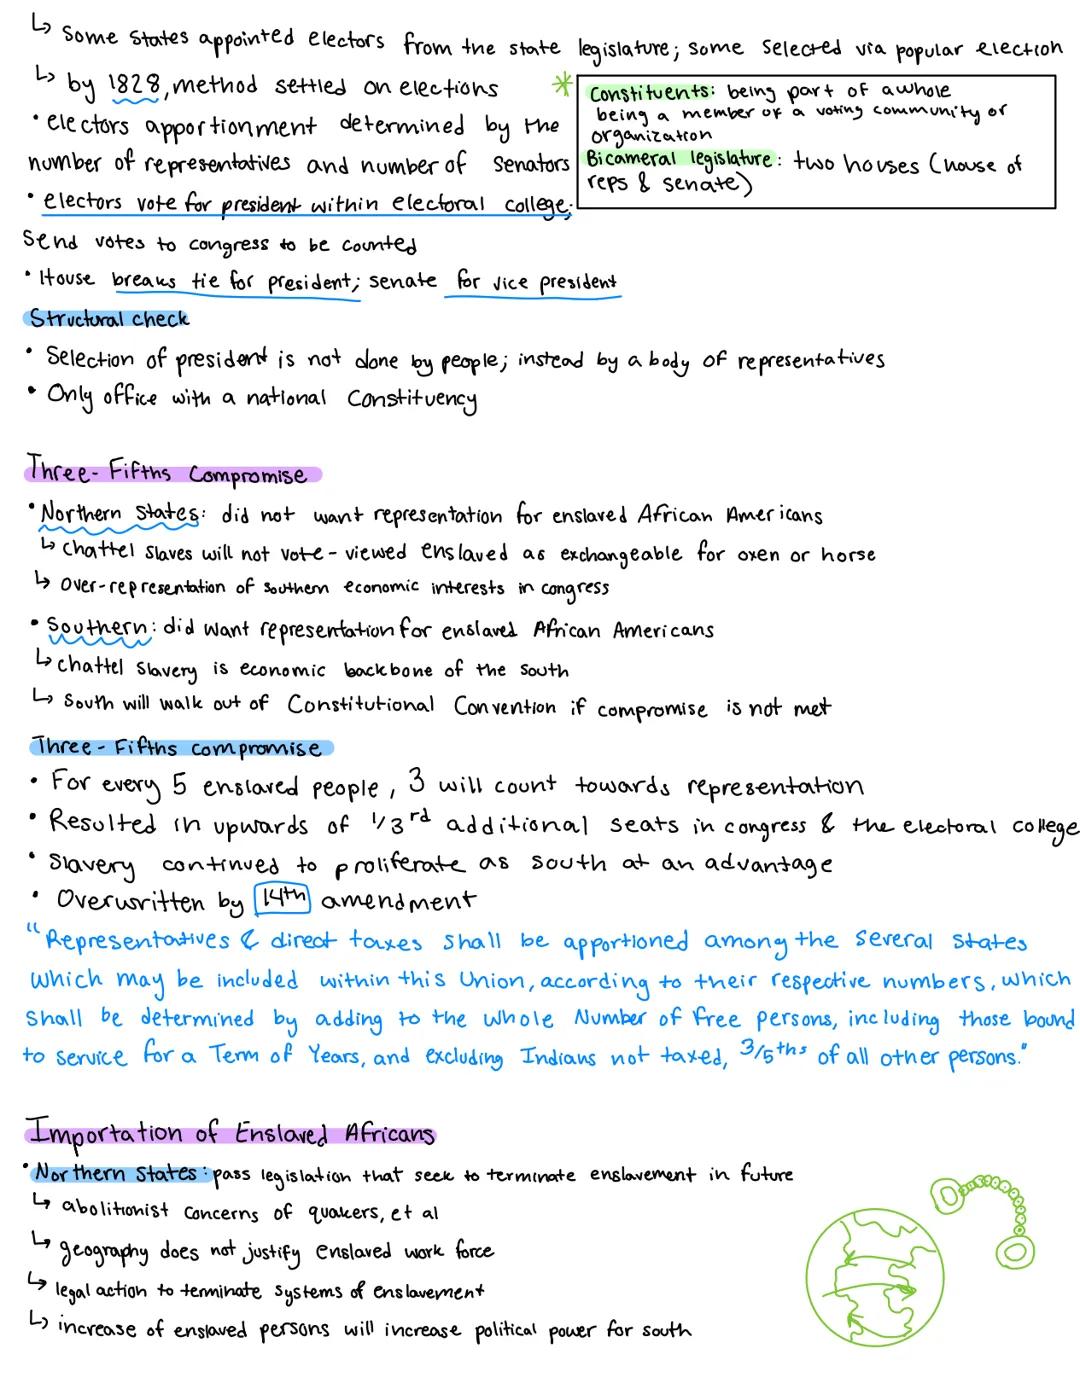 ↳ Some States appointed electors from the state legislature; some selected via popular election
↳ by 1828, method settled on elections
* Constituents: being part of a whole
being a member of a voting community or
organization
Bicameral legislature: two houses (house of
reps & senate)
• electors apportionment determined by the
number of representatives and number of Senators
• electors vote for president within electoral college;
Send votes to congress to be counted
• House breaks tie for president; senate for vice president
Structural check
• Selection of president is not done by people; instead by a body of representatives
• Only office with a national Constituency
Three-Fifths Compromise
• Northern States: did not want representation for enslaved African Americans
↳ chattel slaves will not vote - viewed enslaved as exchangeable for oxen or horse
↳ over-representation of southern economic interests in congress
• Southern: did want representation for enslaved African Americans
↳ chattel slavery is economic backbone of the south
↳ South will walk out of Constitutional Convention if compromise is not met
Three-Fifths compromise
• For every 5 enslaved people, 3 will count towards representation
• Resulted in upwards of 1/3rd additional seats in congress & the electoral college
• Slavery continued to proliferate as south at an advantage
• Overwritten by 14th amendment
"Representatives & direct taxes shall be apportioned among the several states
which may be included within this Union, according to their respective numbers, which
shall be determined by adding to the whole Number of free persons, including those bound
to service for a Term of Years, and excluding Indians not taxed, 3/5ths of all other persons."
Importation of Enslaved Africans
• Northern States: pass legislation that seek to terminate enslavement in future
↳ abolitionist concerns of quakers, et al
↳ geography does not justify enslaved work force
↳ legal action to terminate systems of enslavement
↳ increase of enslaved persons will increase political power for south